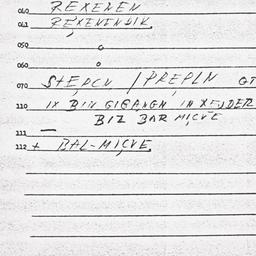 040 REXENEN
041 REXENENDIK,
050
060
070 STEPCN / PREPLN GT
110 IX BIN GIGANGN IN XEJDER
BIZ BAR MICVE
111 —
112 + BAL-MICVE,